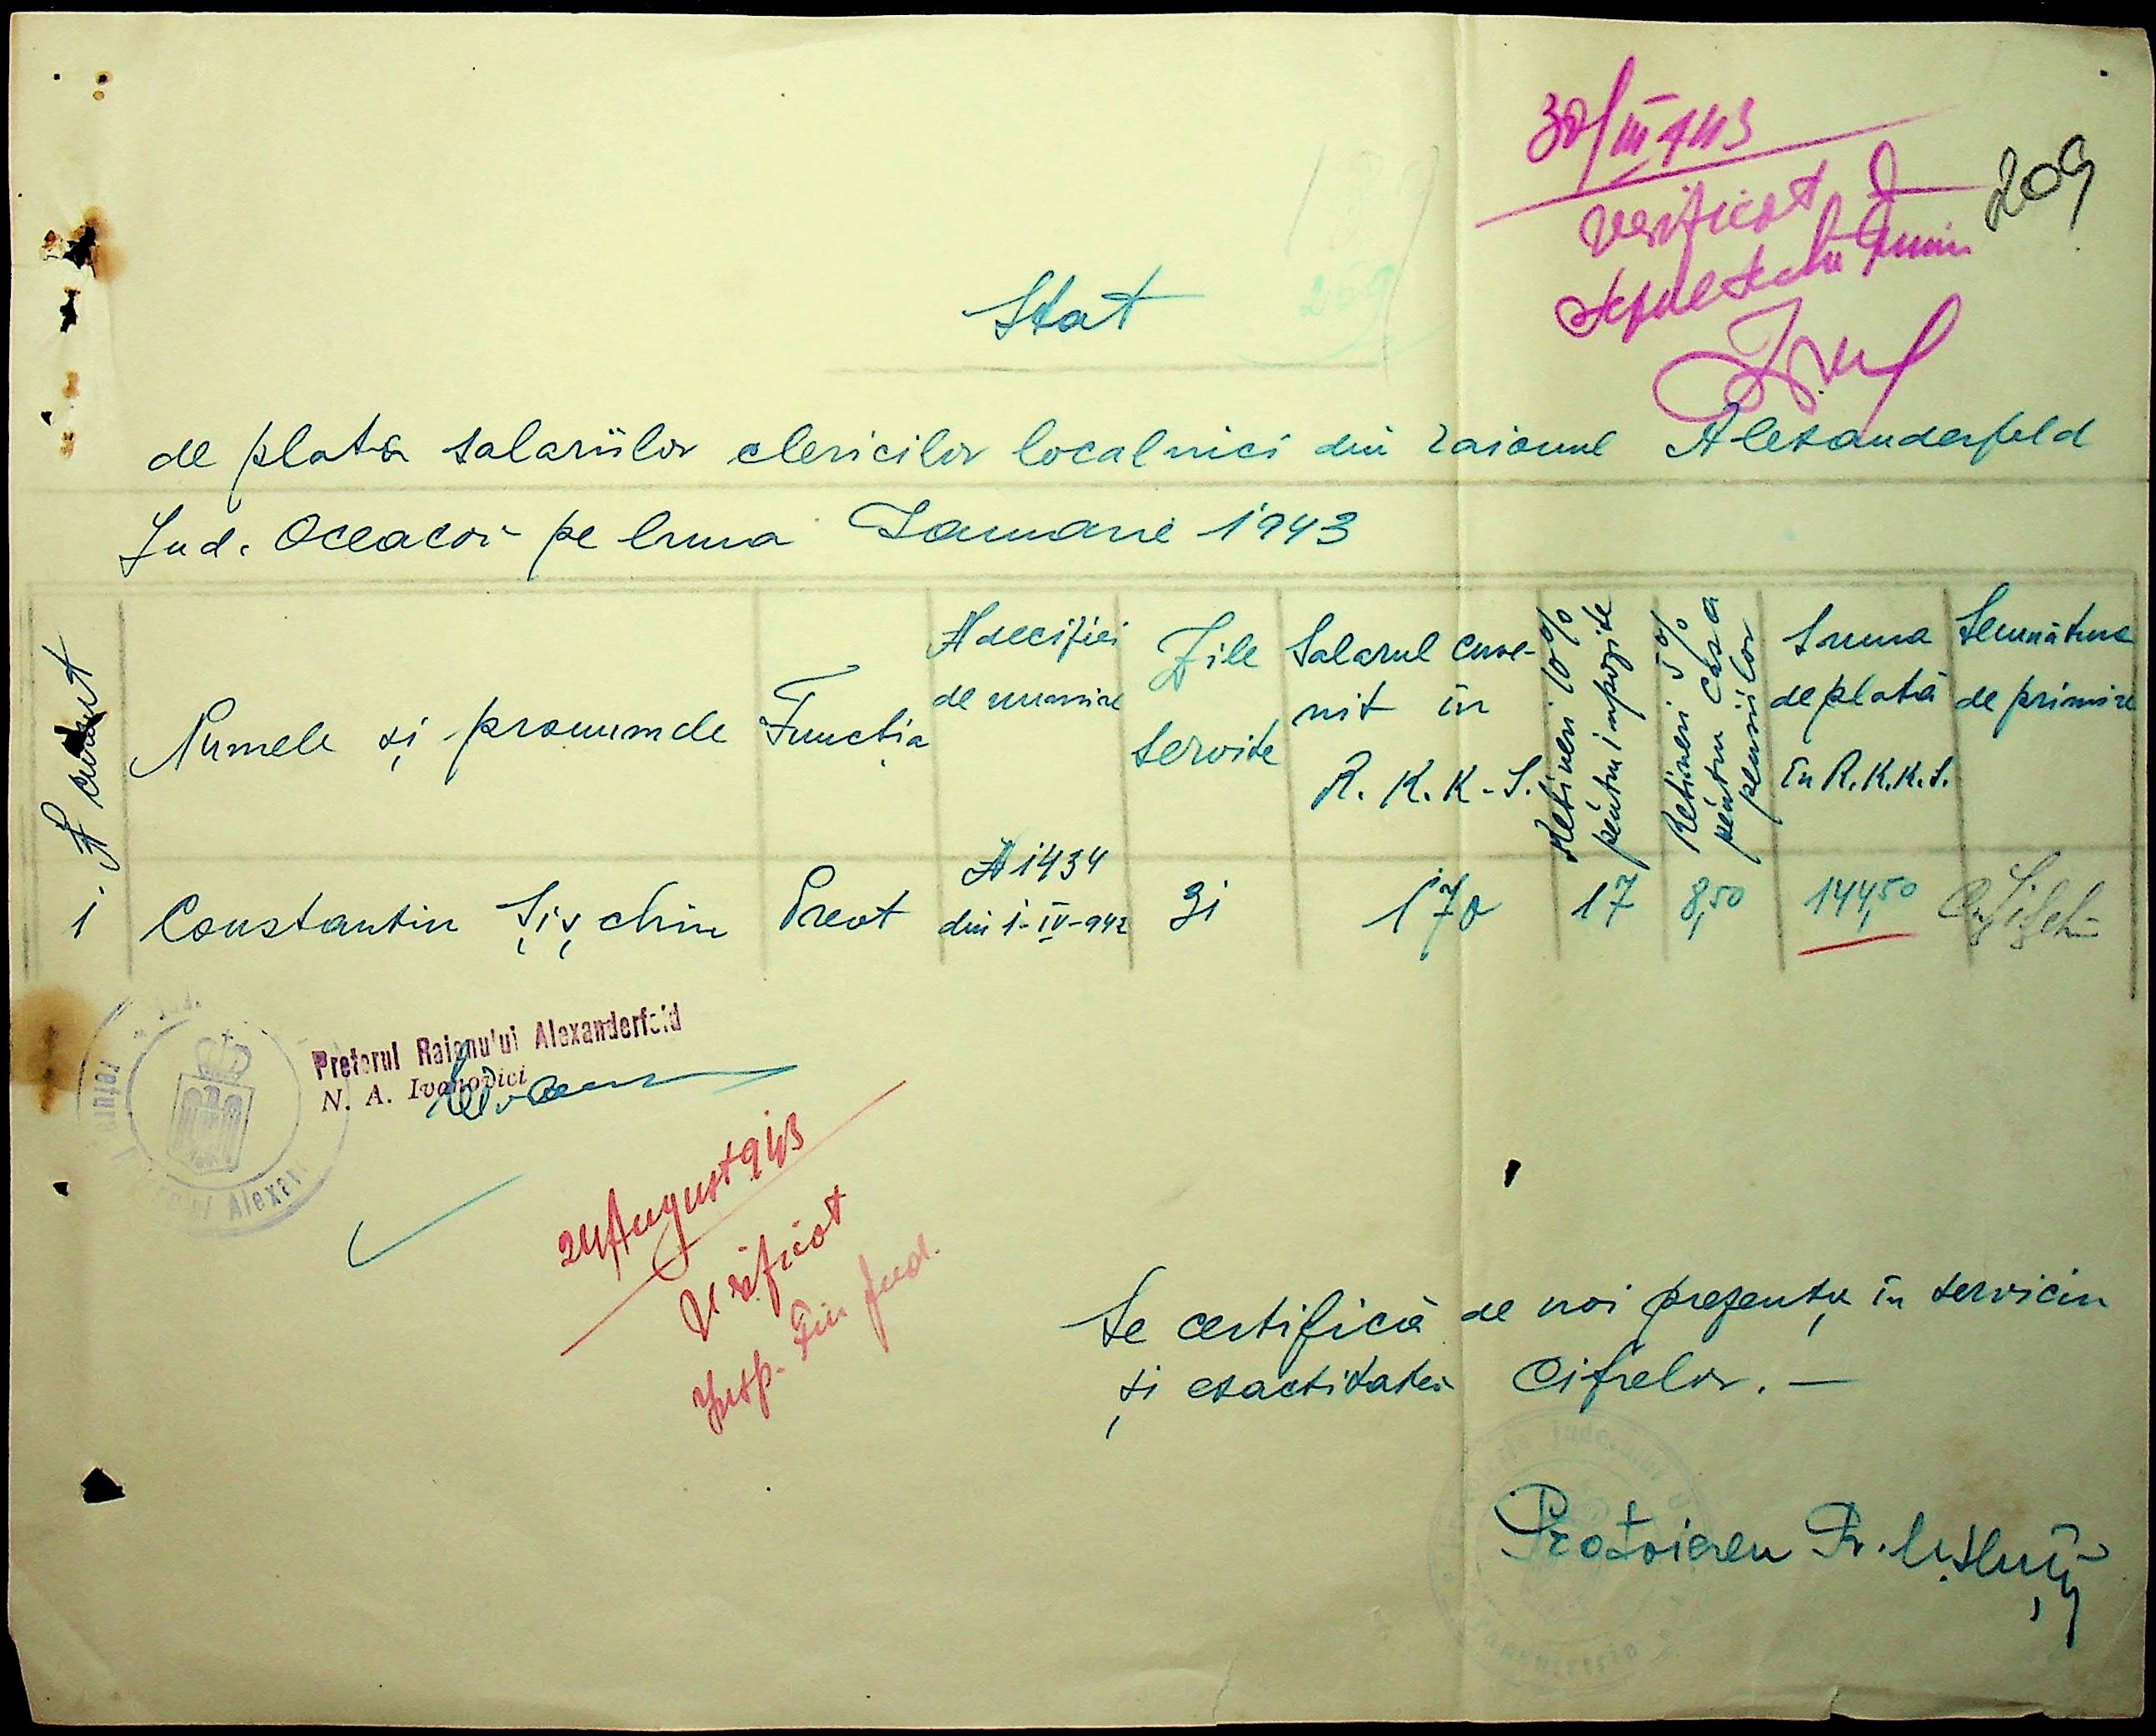 30/III 943
Verificat
209
269
Stat
de plata salariilor clericilor localnici din raionul Alexanderfeld
Jud. Oceacov pe luna Ianuarie 1943
№ curent
Numele și pronumele
Funcția
№ deciziei de numire
Zile servite
Salarul cuve-
nit în
R. K. K. S.
Rețineri 10%
pentru impozite
Rețineri 5%
pentru casa
pensiilor
Suma
de plată
în R.K.K.S.
Semnătura
de primire
1. Constantin Șișchin Preot № 1434 din 1-IV-942 31 170 17 8,50 144,50
Pretorul Raionului Alexanderfeld
N. A. Ivanovici
24 August 943
Verificat
Insp. Fin Jud.
Se certifică de noi prezența în serviciu
și exactitatea cifrelor. —
Protoiereu Pr.